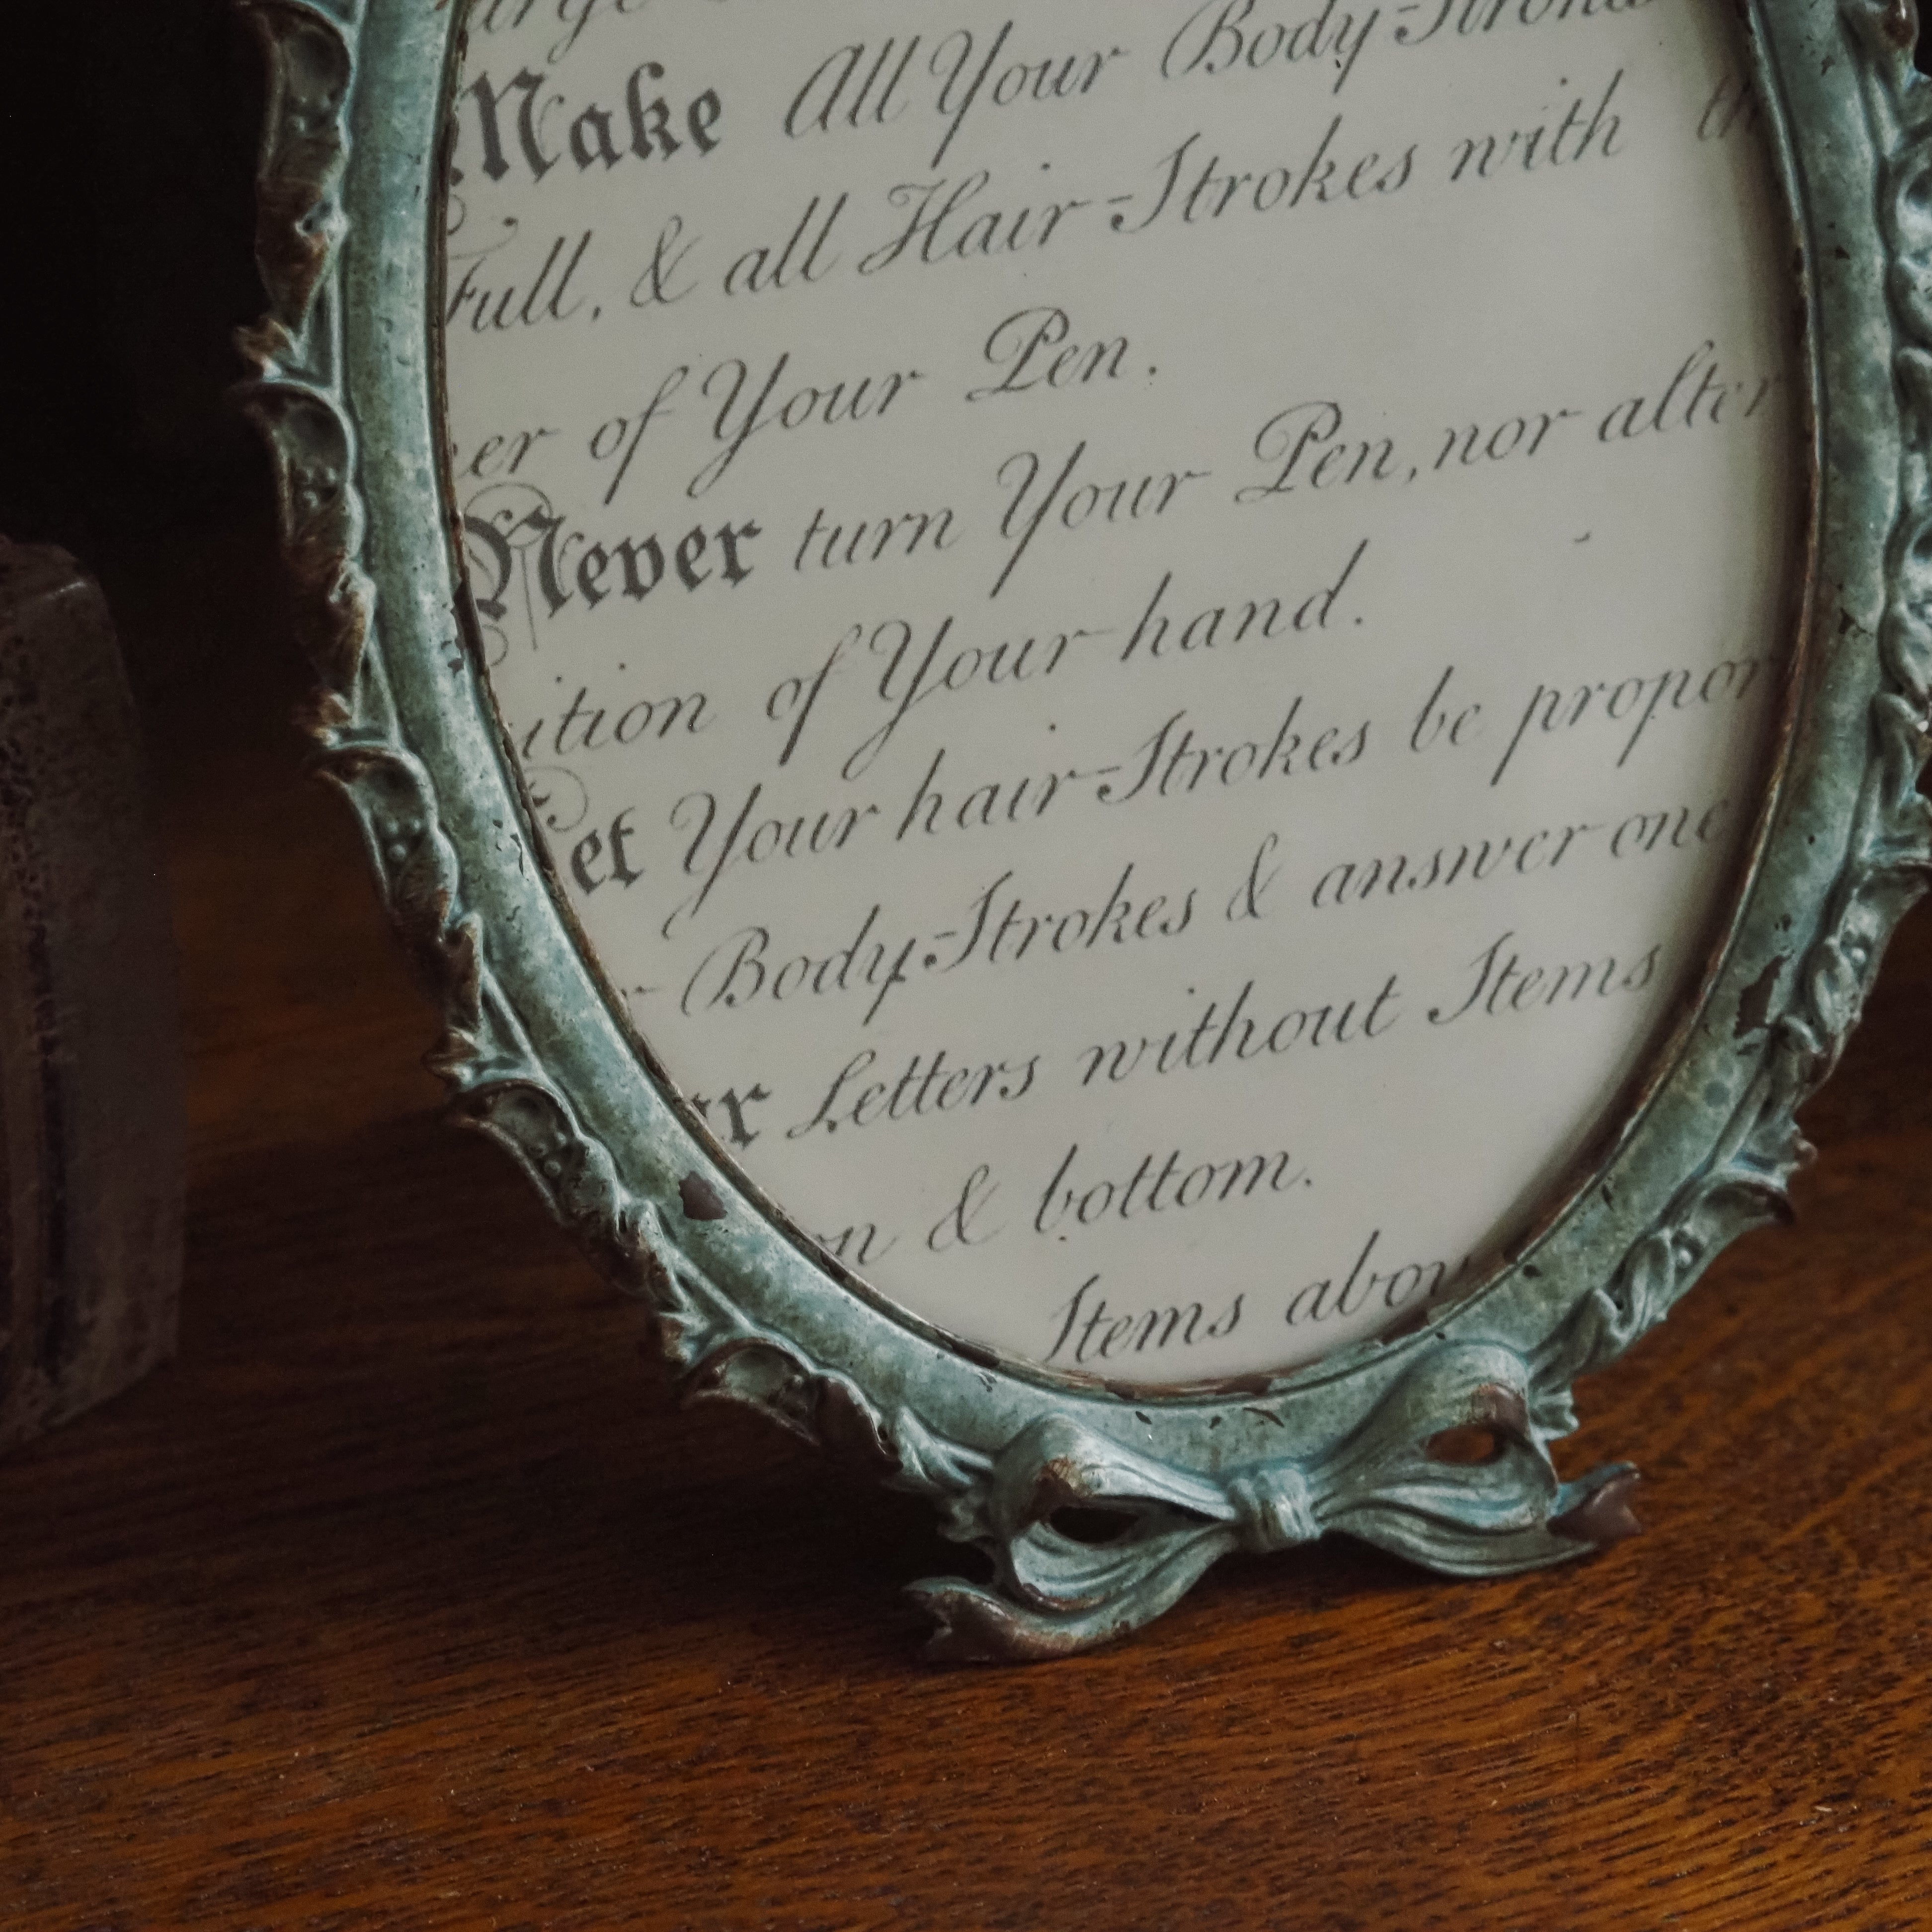 Make All Your Body-Strokes
Full, & all Hair-Strokes with
of Your Pen.
Never turn Your Pen, nor alter
of Your hand.
Your hair-Strokes be
Body-Strokes & answer one
Letters without Items
& bottom.
Items